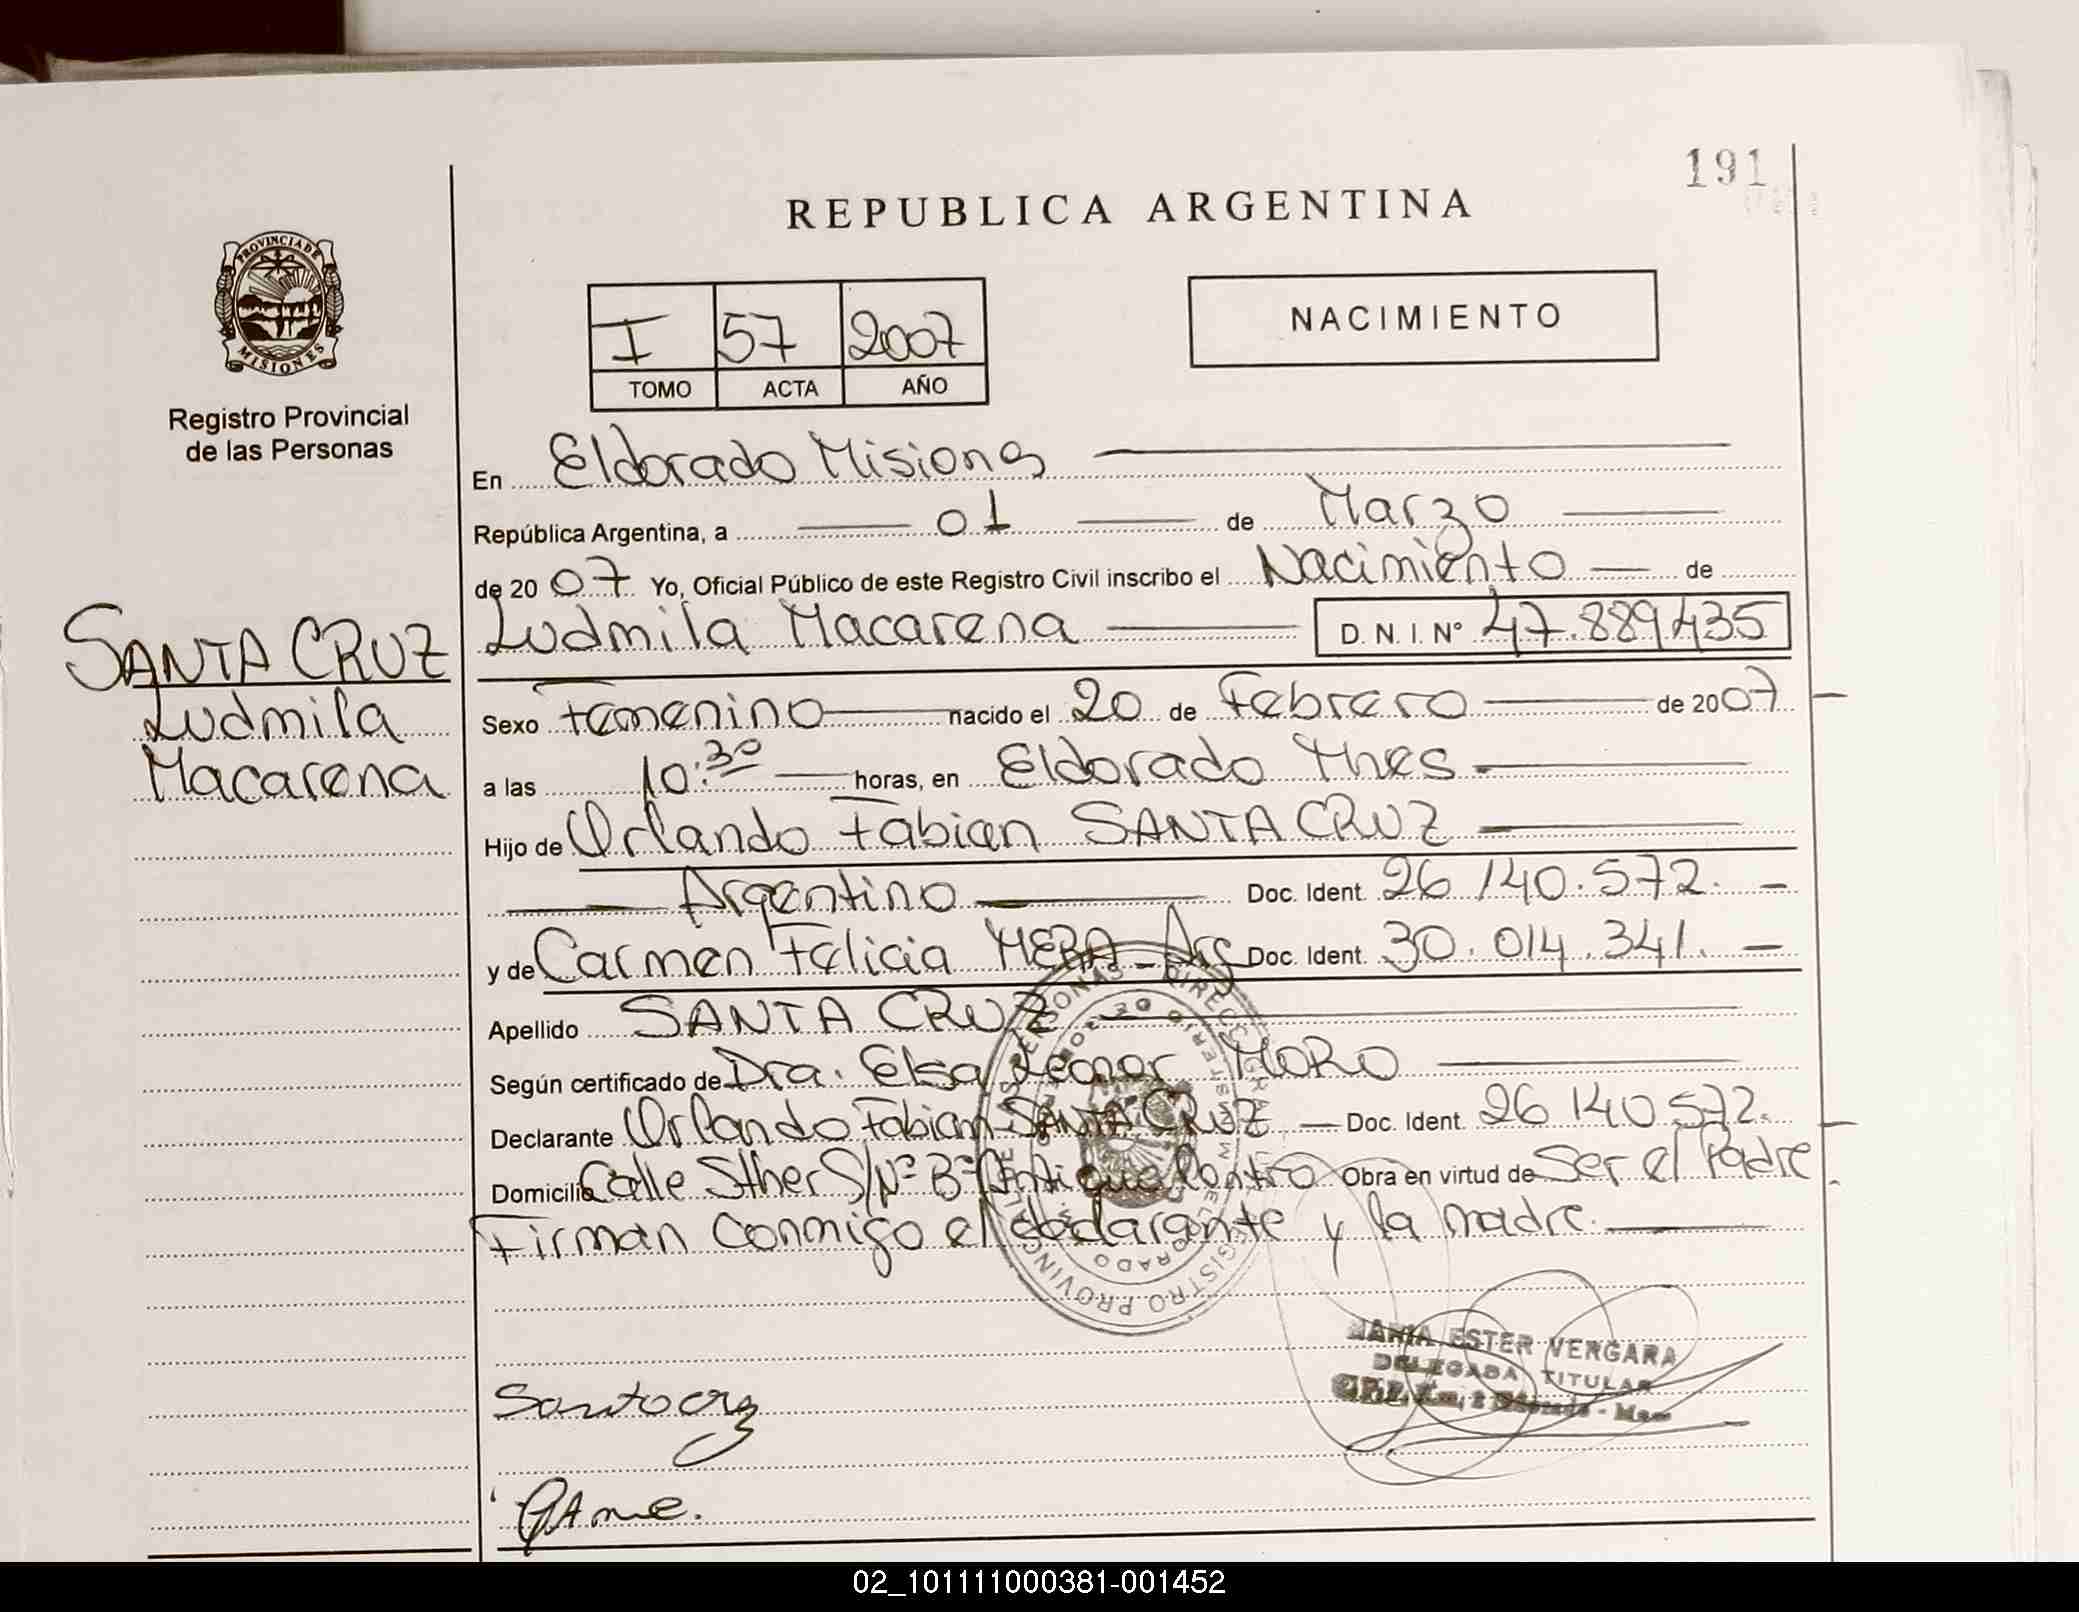 191
REPUBLICA ARGENTINA
PROVINCIA DE
MISIONES
Registro Provincial
de las Personas
NACIMIENTO
I 57 2007
TOMO ACTA AÑO
En Eldorado Misiones
República Argentina, a 01 de Marzo
de 2007 Yo, Oficial Público de este Registro Civil inscribo el Nacimiento de
SANTA CRUZ
Ludmila
Macarena
Ludmila Macarena D.N.I. Nº 47.889.435
Sexo Femenino nacido el 20 de Febrero de 2007
a las 10:30 horas, en Eldorado Mnes
Hijo de Orlando Fabian SANTA CRUZ
Argentino Doc. Ident. 26.140.572.
y de Carmen Felicia MERA - Arg Doc. Ident. 30.014.341.
Apellido SANTA CRUZ
Según certificado de Dra. Elsa Leonor MORO
Declarante Orlando Fabian SANTA CRUZ Doc. Ident. 26 140.572.
Domicilio Calle Sther S/Nº Bº Obra en virtud de Ser el Padre
Firman conmigo el declarante y la madre.
MARIA ESTER VERGARA
DELEGADA TITULAR
02_101111000381-001452